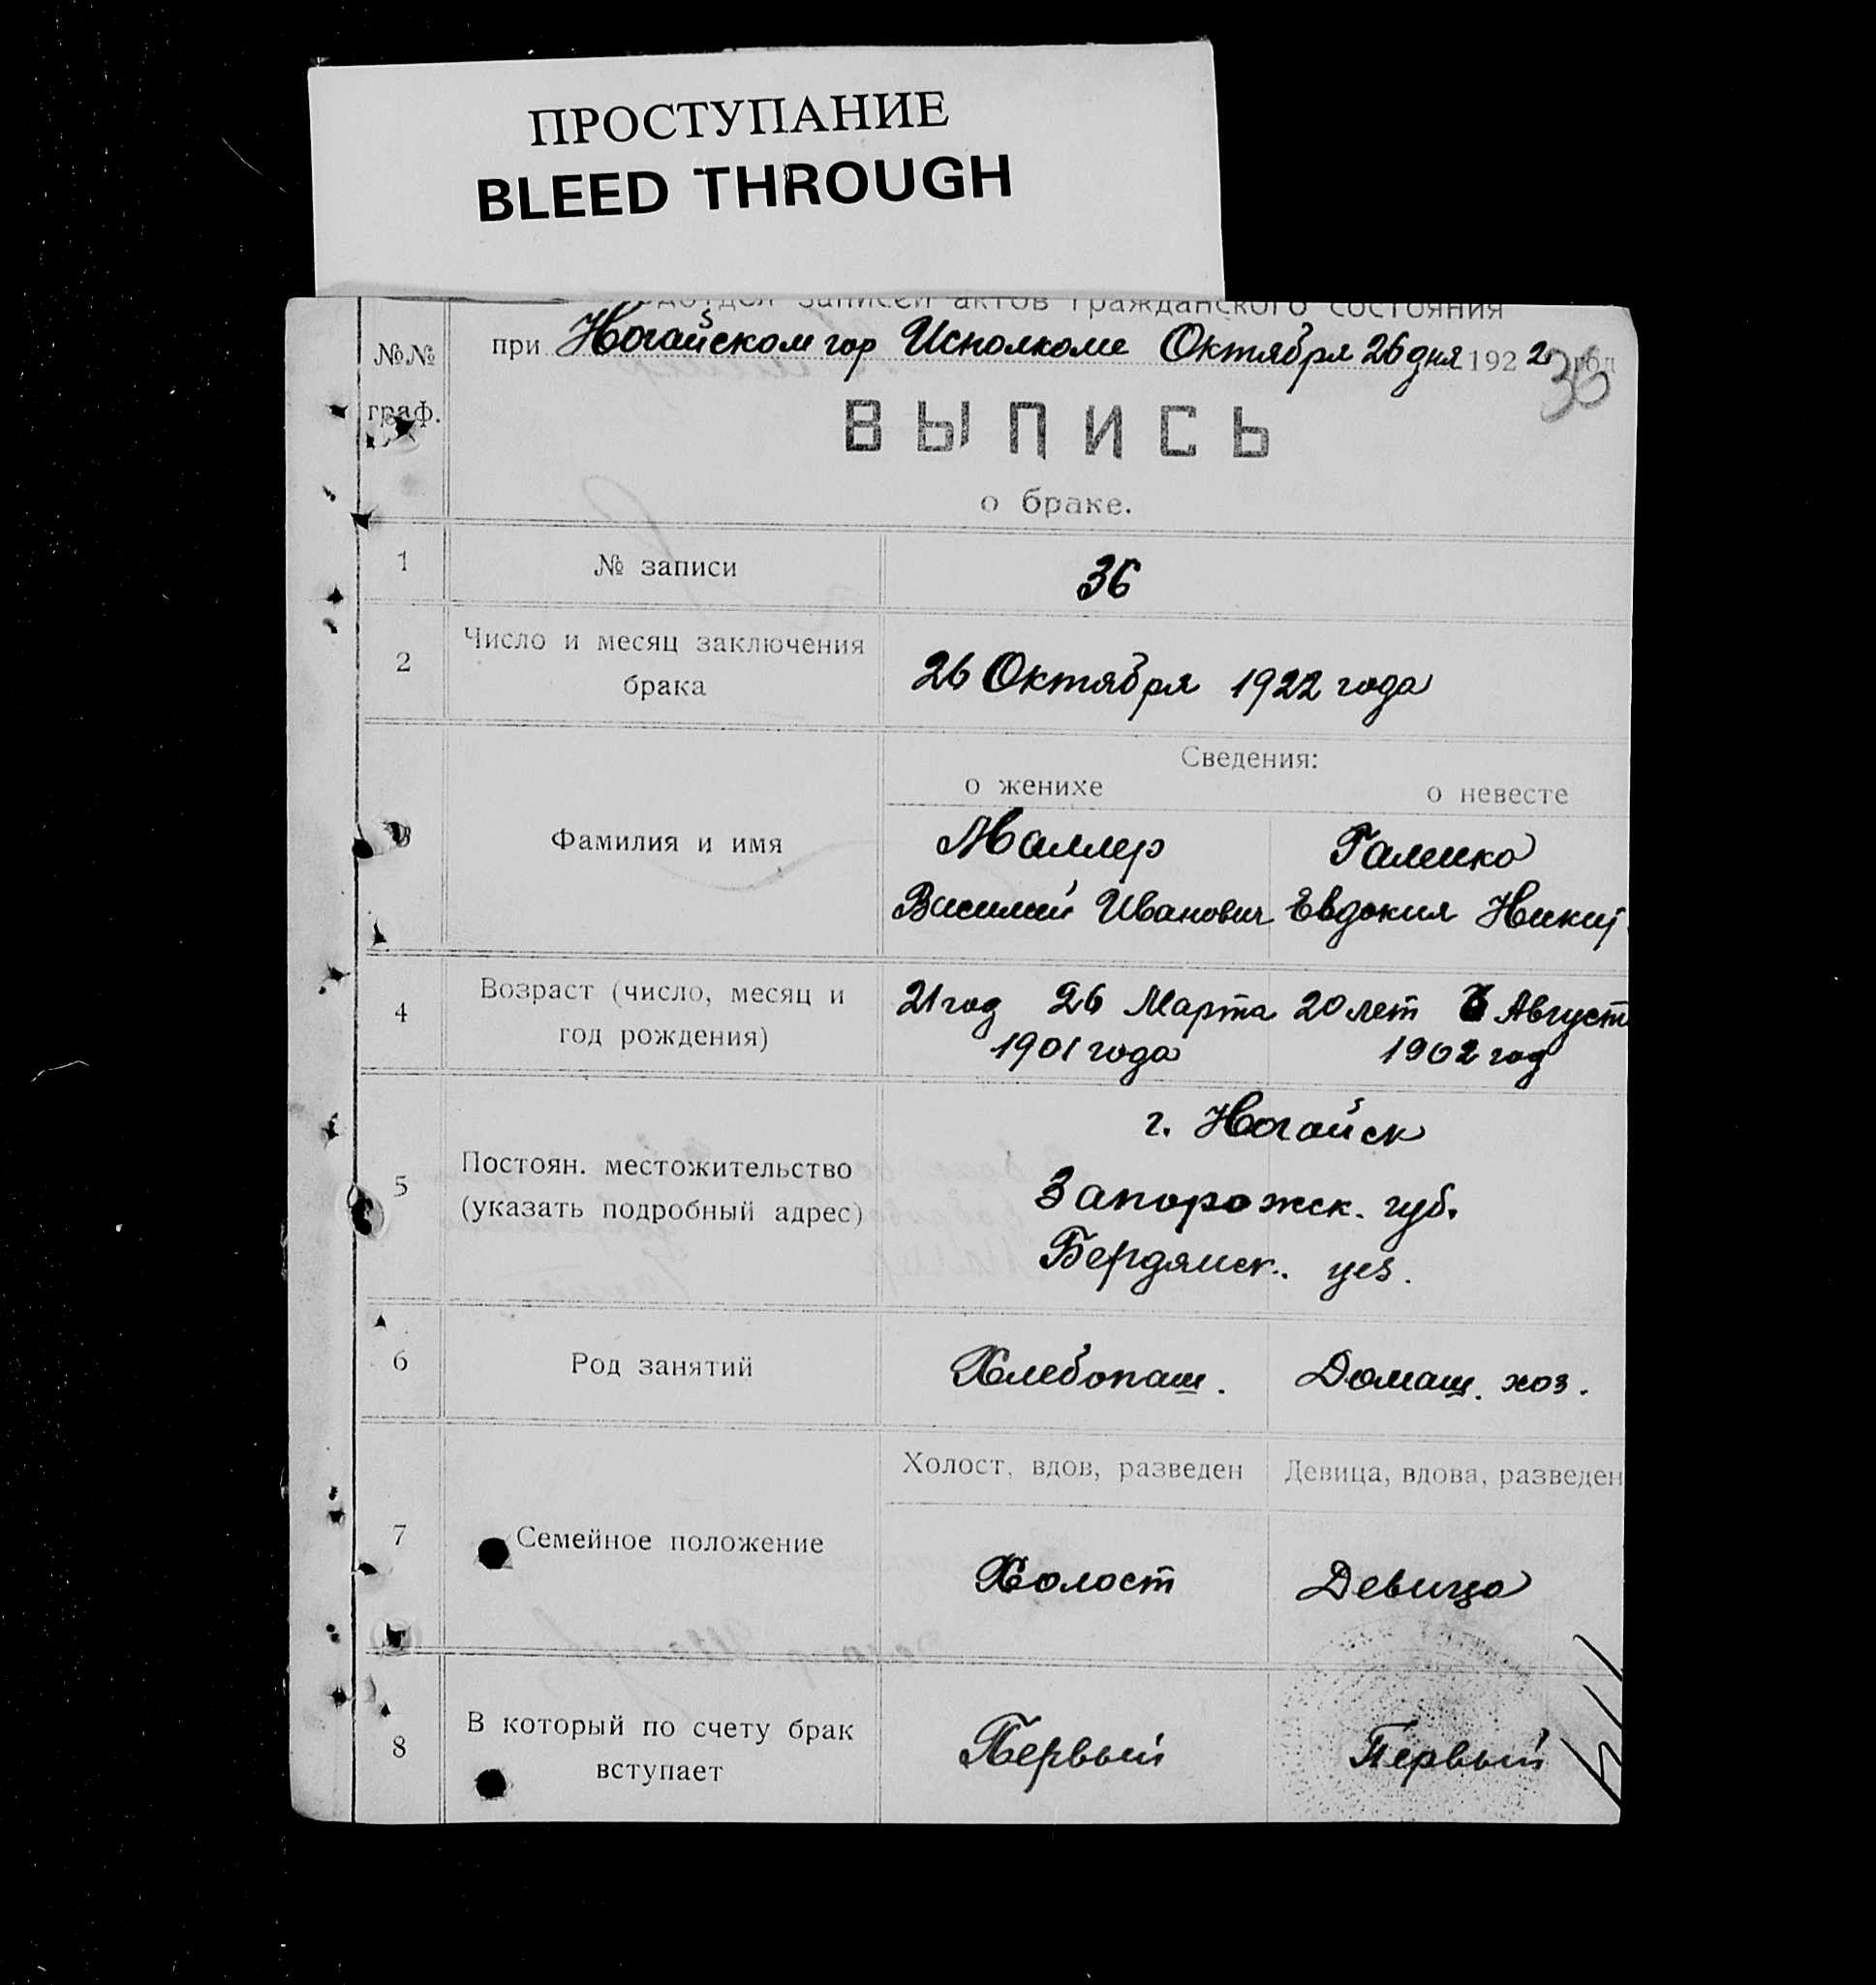 ПРОСТУПАНИЕ
BLEED THROUGH
записей актов гражданского состояния
при Ногайском гор Исполкоме Октября 26 дня 1922 год
36
№№
граф.
ВЫПИСЬ
о браке.
1 № записи 36
2 Число и месяц заключения
брака
26 Октября 1922 года
Сведения:
о женихе о невесте
Фамилия и имя
Маллер Галенко
Василий Иванович Евдокия Никит
4 Возраст (число, месяц и
год рождения)
21 год 26 Марта 20 лет 6 Август
1901 года 1902 год
5 Постоян. местожительство
(указать подробный адрес)
г. Ногайск
Запорожск. губ.
Бердянск. уез.
6 Род занятий Хлебопаш. Домаш. хоз.
Холост, вдов, разведен Девица, вдова, разведен
7 Семейное положение
Холост Девица
8 В который по счету брак
вступает
Первый Первый